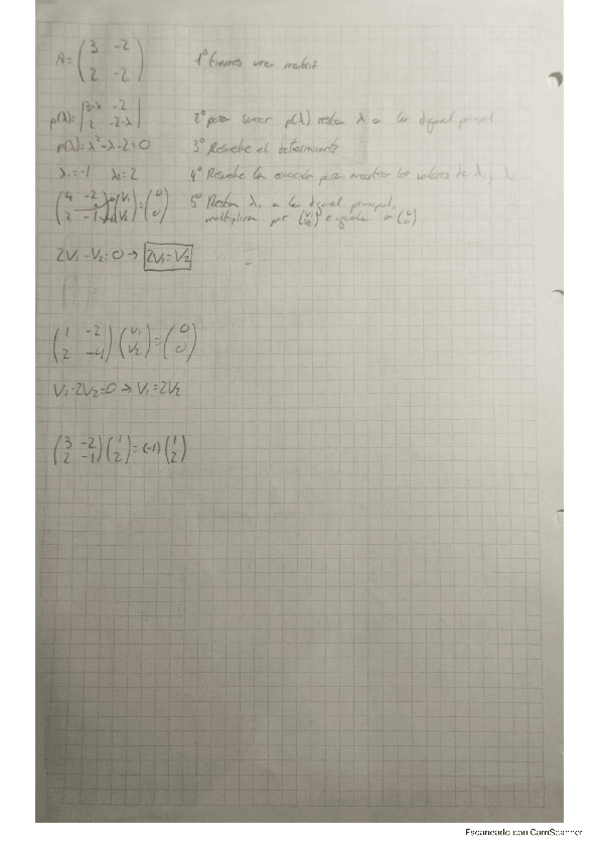 A = ( 3 -2 ; 2 -2 ) 1º tienes una matriz
p(λ) = | 3-λ -2 ; 2 -2-λ | 2º para sacar p(λ) restas λ a la diagonal principal
p(λ) = λ² - λ - 2 = 0 3º Resuelve el determinante
λ₁ = -1 λ₂ = 2 4º Resuelve la ecuación para encontrar los valores de λ₁ y λ₂
( 4 -2 ; 2 -1 ) ( V₁ ; V₂ ) = ( 0 ; 0 ) 5º Restas λ₁ a la diagonal principal,
multiplicas por ( V₁ ; V₂ ) e igualas a ( 0 ; 0 )
2V₁ - V₂ = 0 → 2V₁ = V₂
( 1 -2 ; 2 -4 ) ( V₁ ; V₂ ) = ( 0 ; 0 )
V₁ - 2V₂ = 0 → V₁ = 2V₂
( 3 -2 ; 2 -1 ) ( 1 ; 2 ) = (-1) ( 1 ; 2 )
Escaneado con CamScanner